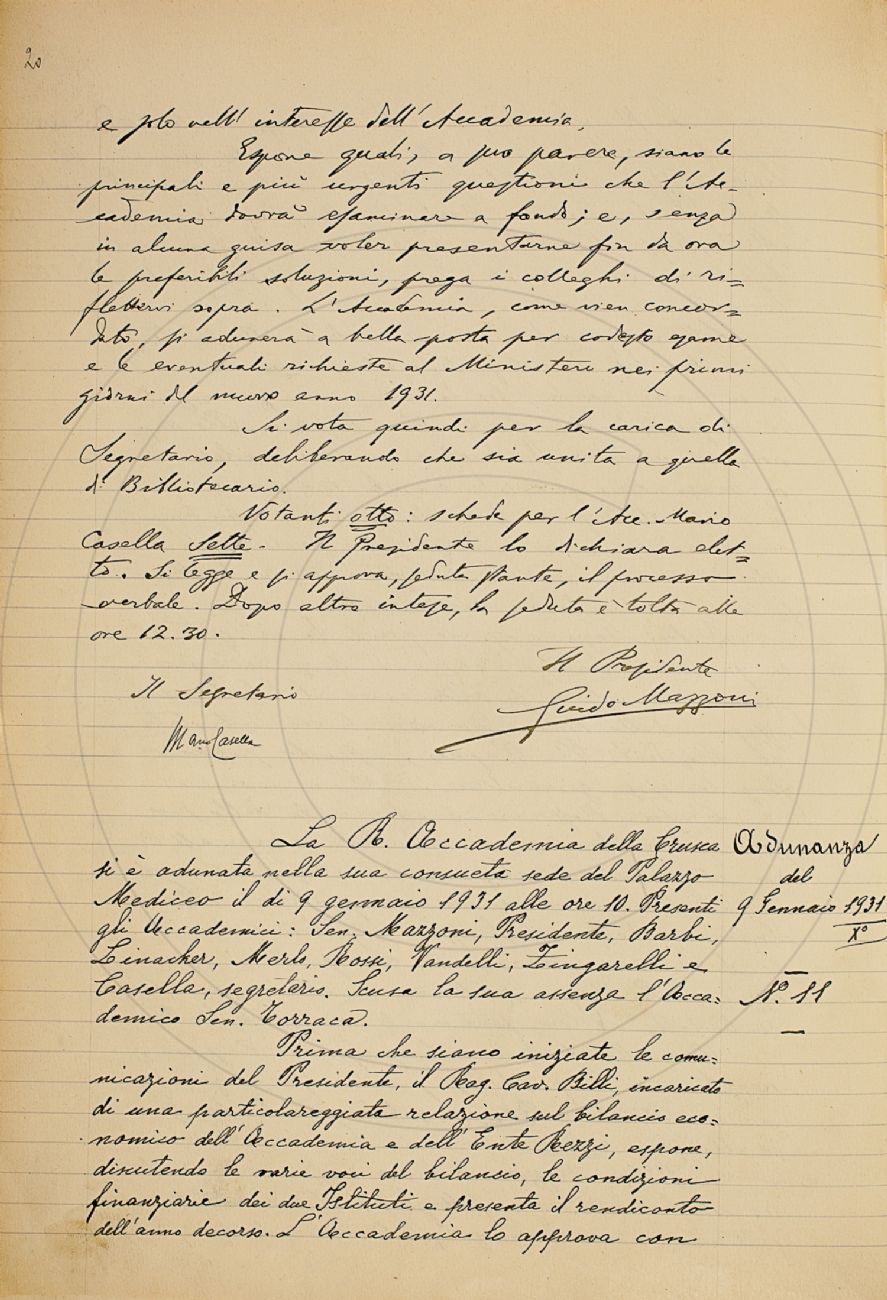 20
e solo nell' interesse dell'Accademia.
Espone quali, a suo parere, siano le
principali e più urgenti questioni che l'Ac-
cademia dovrà esaminare a fondo; e, senza
in alcuna guisa voler presentarne fin da ora
le preferibili soluzioni, prega i colleghi di ri=
flettervi sopra. L'Accademia, come vien concor=
dato, si adunerà a bella posta per codesto esame
e le eventuali richieste al Ministero nei primi
giorni del nuovo anno 1931.
Si vota quindi per la carica di
Segretario, deliberando che sia unita a quella
di Bibliotecario.
Votanti otto: schede per l'Acc. Mario
Casella sette. Il Presidente lo dichiara elet=
to. Si legge e si approva, seduta stante, il processo
verbale. Dopo altre intese, la seduta è tolta alle
ore 12.30.
Il Presidente
Guido Mazzoni
Il Segretario
Mario Casella
La R. Accademia della Crusca
si è adunata nella sua consueta sede del Palazzo
Mediceo il dì 9 gennaio 1931 alle ore 10. Presenti
gli Accademici: Sen. Mazzoni, Presidente, Barbi,
Linacher, Merlo, Rossi, Vandelli, Zingarelli e
Casella, segretario. Scusa la sua assenza l'Acca=
demico Sen. Torraca.
Adunanza
del
9 Gennaio 1931
X°
N°. 11
Prima che siano iniziate le comu=
nicazioni del Presidente, il Rag. Cav. Billi, incaricato
di una particolareggiata relazione sul bilancio eco=
nomico dell'Accademia e dell'Ente Rezzi, espone,
discutendo le varie voci del bilancio, le condizioni
finanziarie dei due Istituti e presenta il rendiconto
dell'anno decorso. L'Accademia lo approva con